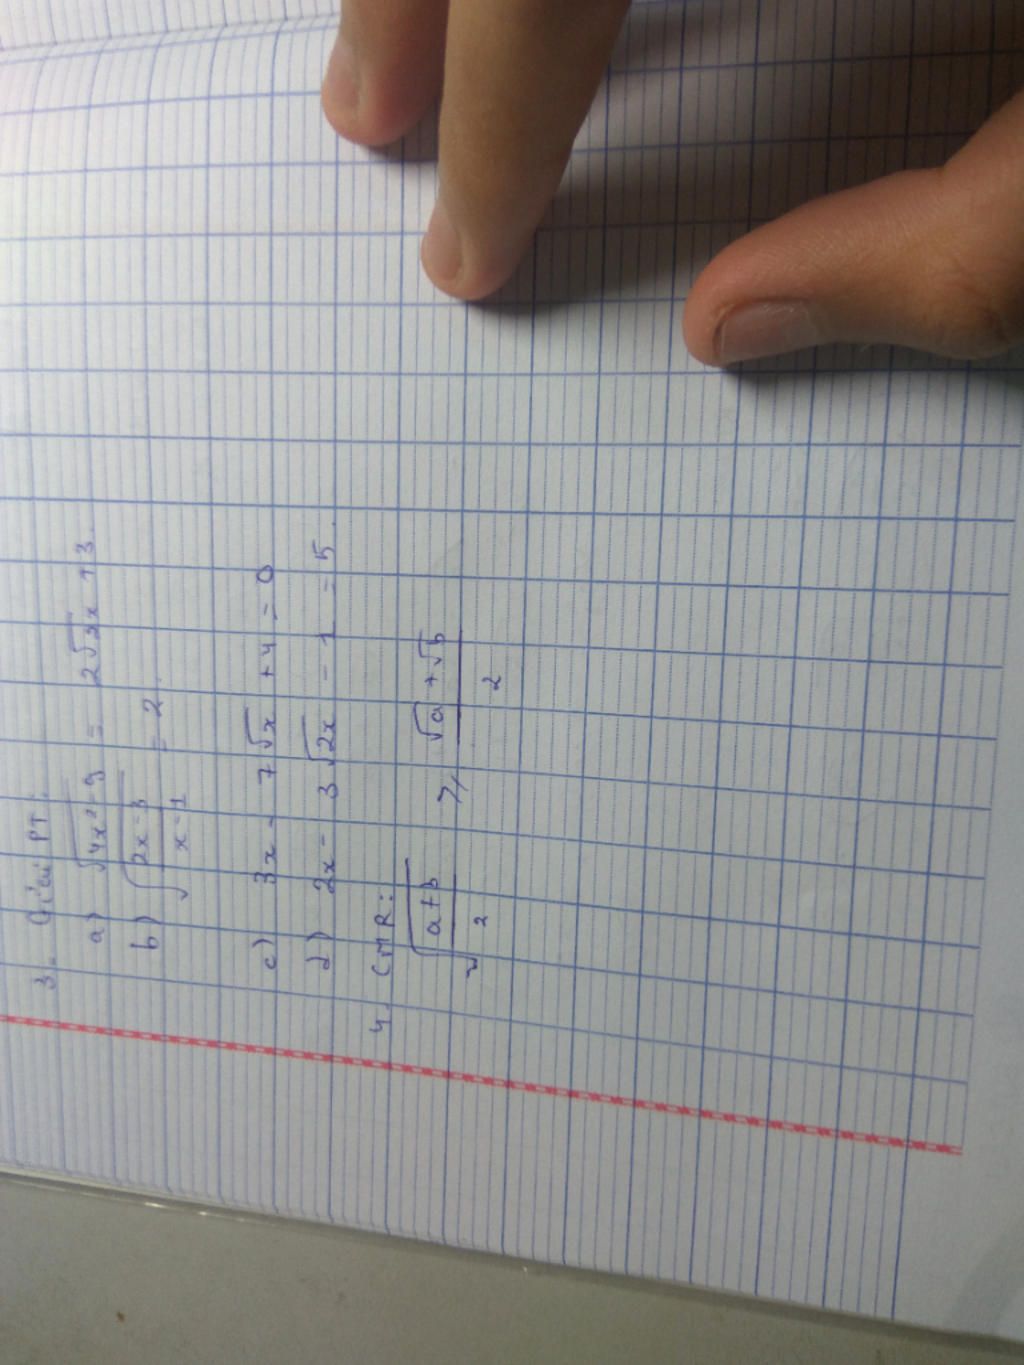 3. Giải PT.
a) √4x² 9 = 2√3x + 3.
b) √(2x-3)/(x-1) = 2.
c) 3x - 7√x + 4 = 0
d) 2x - 3√2x - 1 = 5.
4. CMR:
√(a+b)/2 ≥ (√a + √b)/2